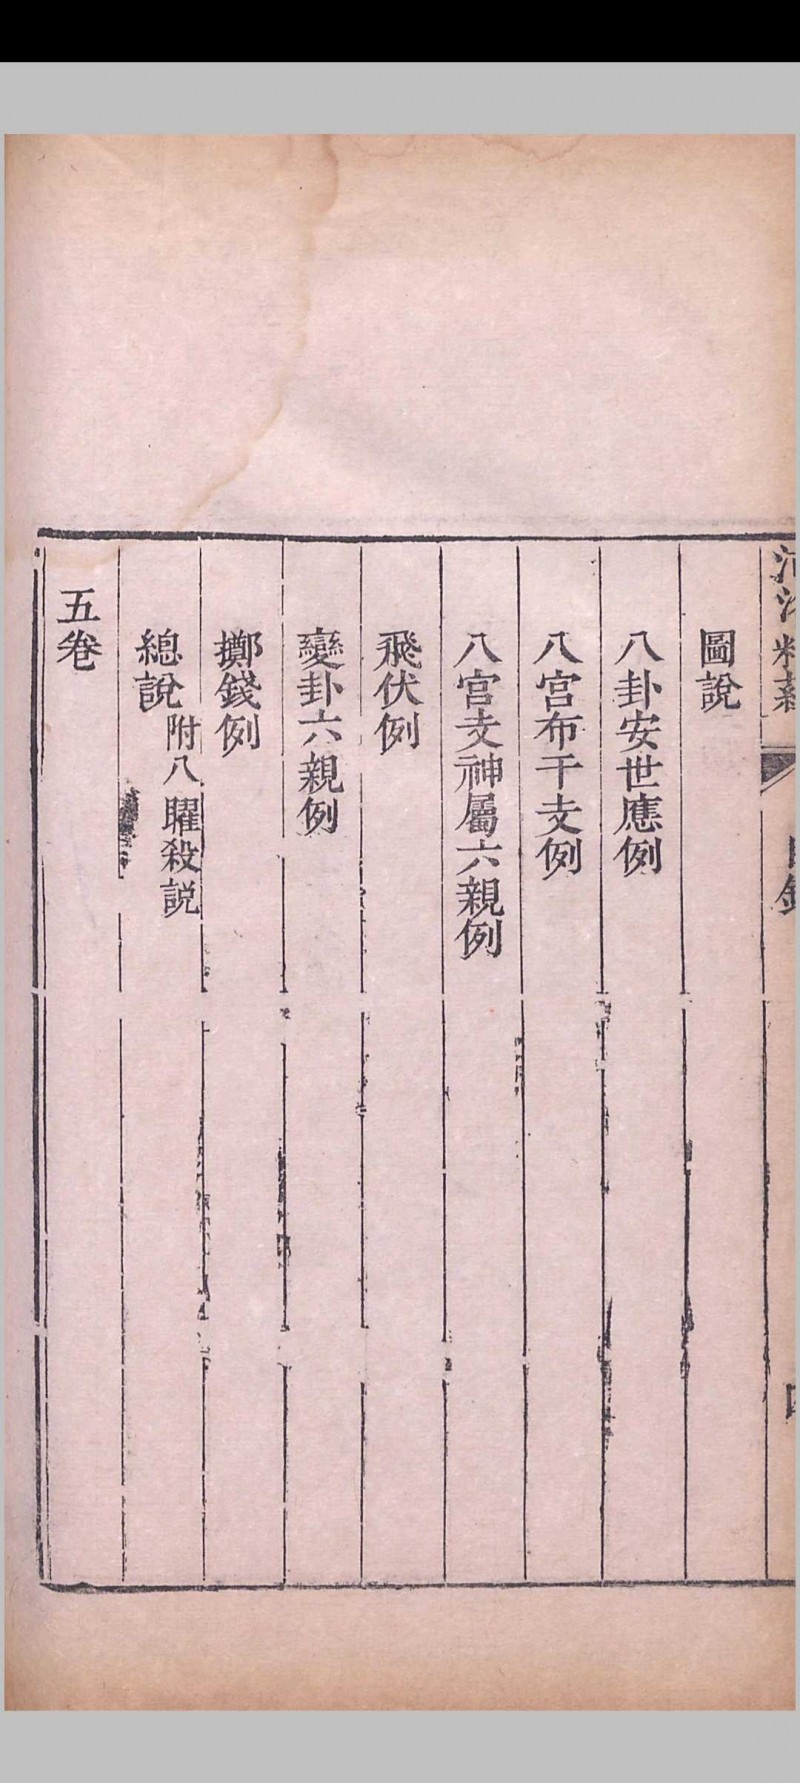 圖說
八卦安世應例
八宮布干支例
八宮支神屬六親例
飛伏例
變卦六親例
擲錢例
總說 附八曜殺説
五卷